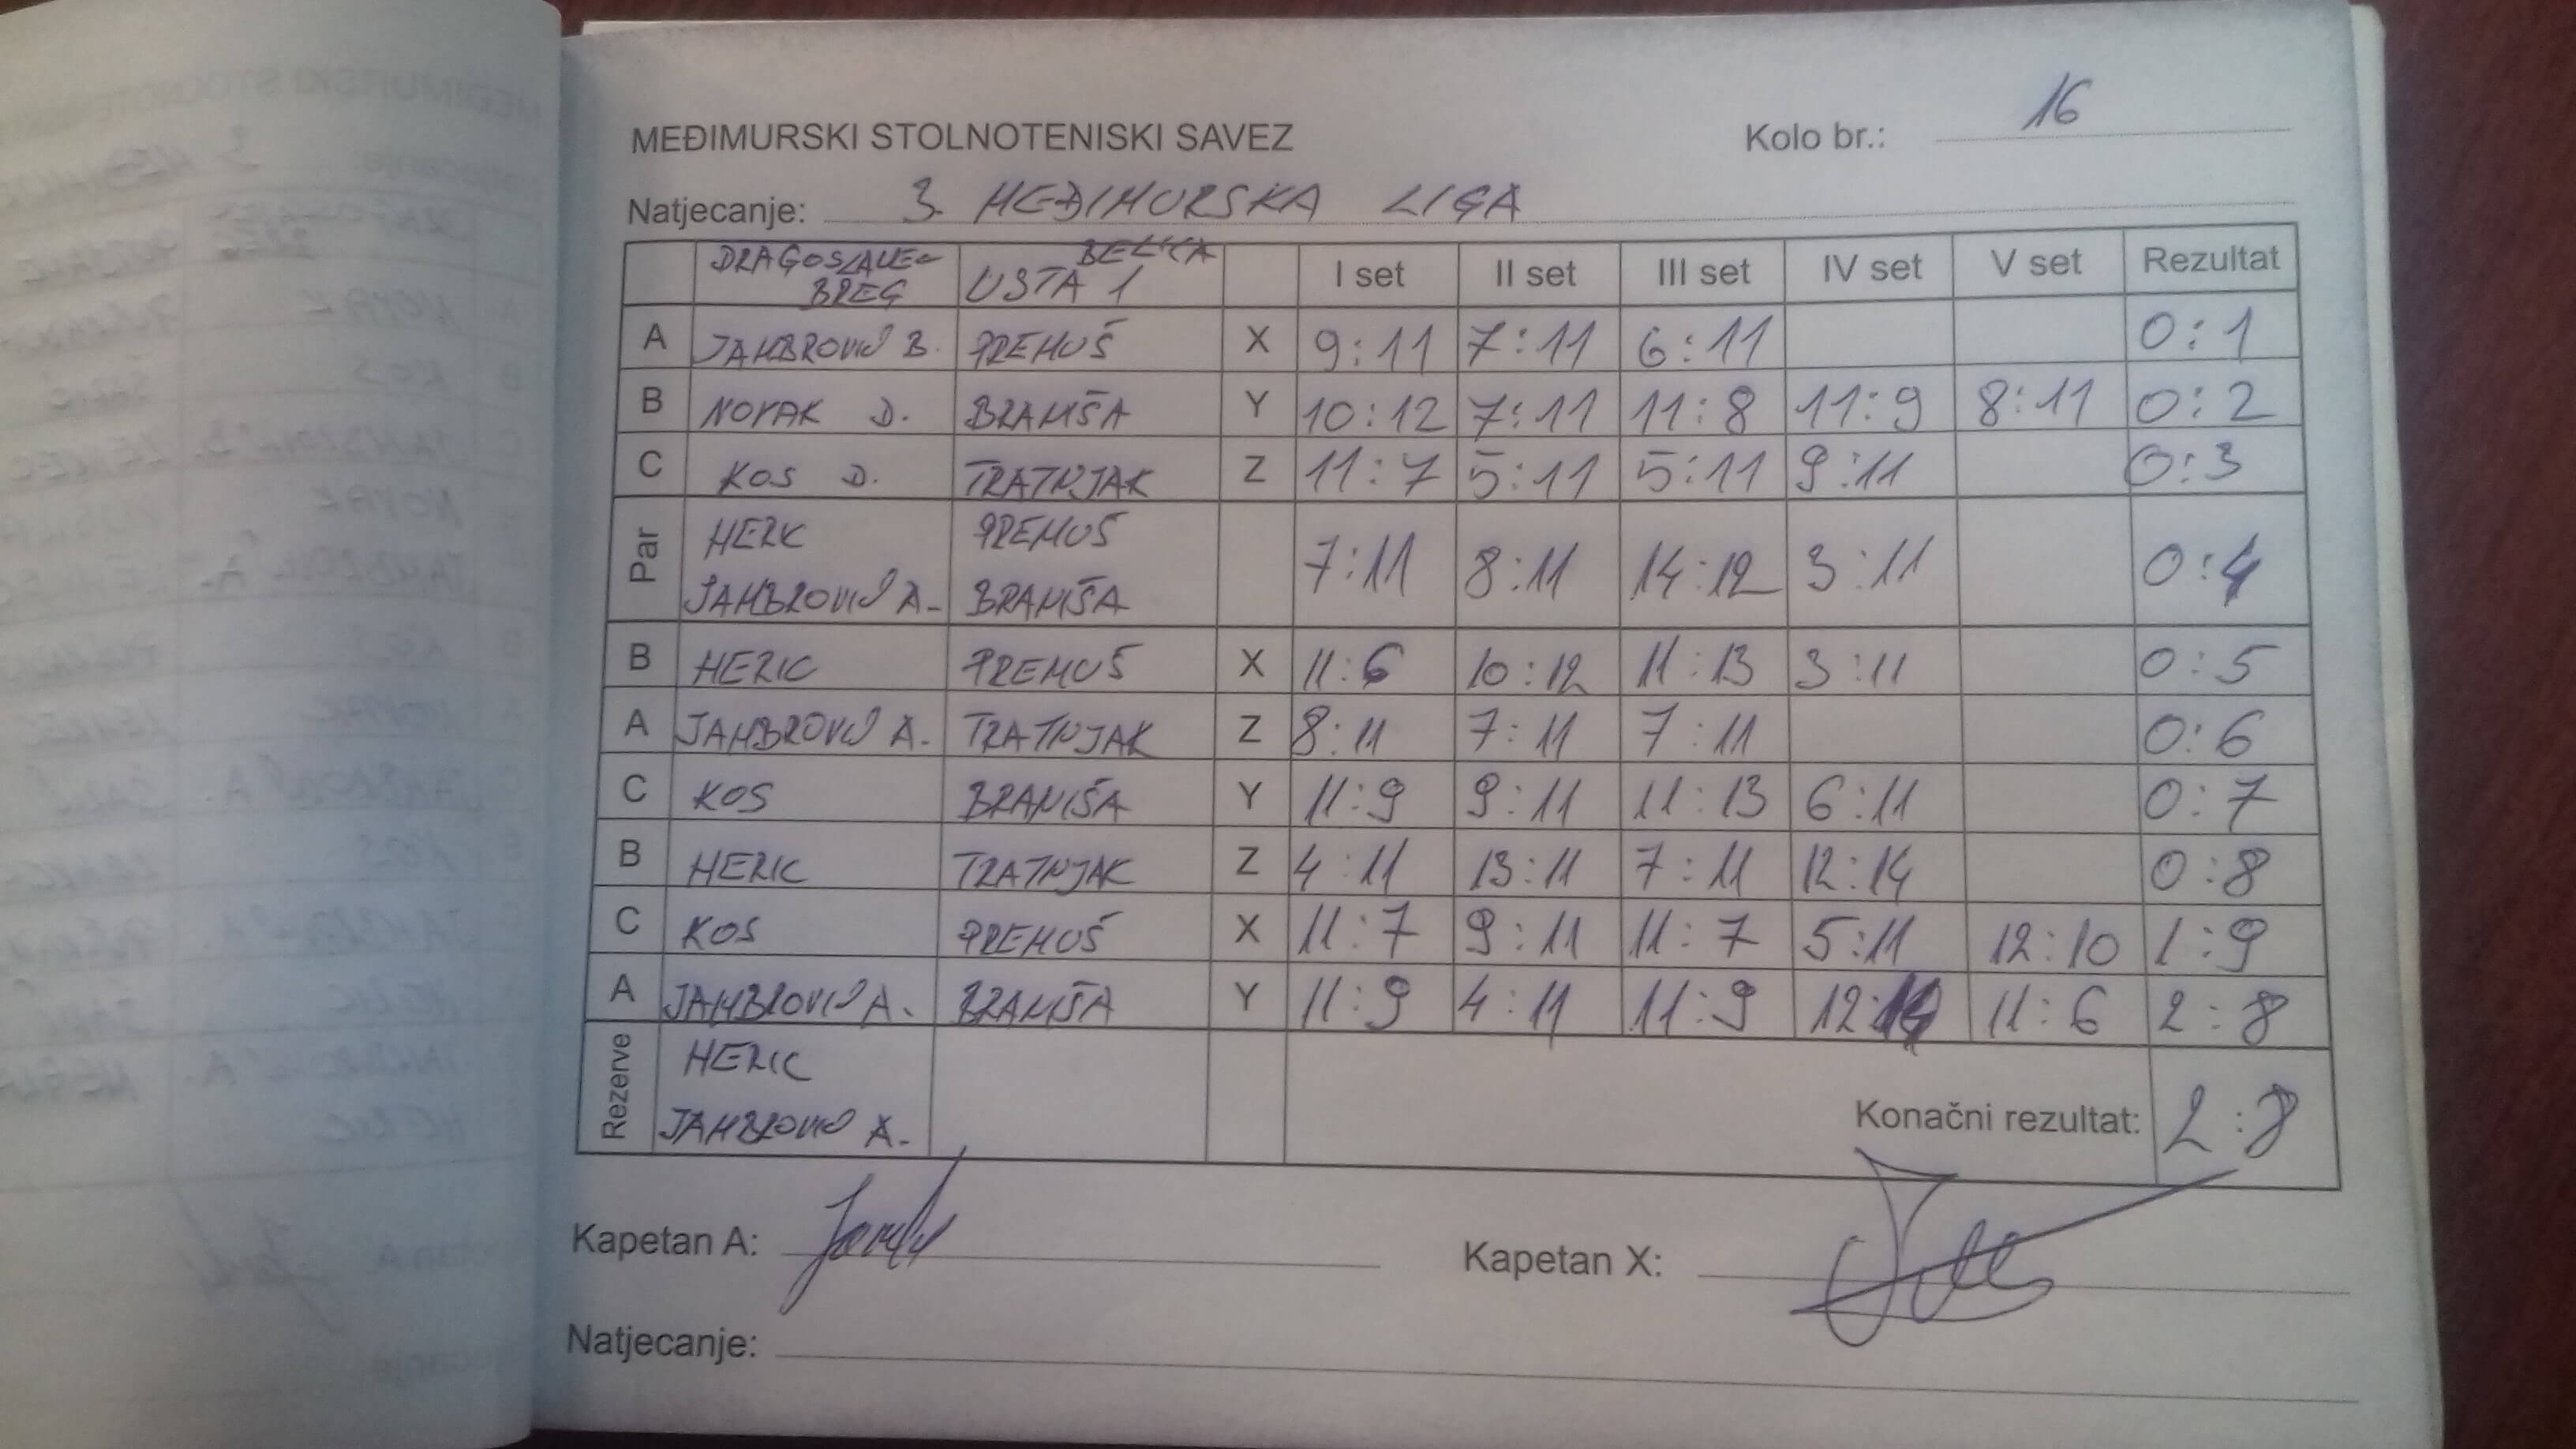 MEĐIMURSKI STOLNOTENISKI SAVEZ
Kolo br.: 16
Natjecanje: 3. MEĐIMURSKA LIGA
DRAGOSLAVEC BREG BELICA USTA 1 I set II set III set IV set V set Rezultat
A JAMBROVIĆ B. PREMUŠ X 9:11 7:11 6:11 0:1
B NOVAK D. BRANIŠA Y 10:12 7:11 11:8 11:9 8:11 0:2
C KOS D. TRATNJAK Z 11:7 5:11 5:11 9:11 0:3
Par HERIC PREMUŠ 7:11 8:11 14:12 3:11 0:4
JAMBROVIĆ A. BRANIŠA
B HERIC PREMUŠ X 11:6 10:12 11:13 3:11 0:5
A JAMBROVIĆ A. TRATNJAK Z 8:11 7:11 7:11 0:6
C KOS BRANIŠA Y 11:9 9:11 11:13 6:11 0:7
B HERIC TRATNJAK Z 4:11 13:11 7:11 12:14 0:8
C KOS PREMUŠ X 11:7 9:11 11:7 5:11 12:10 1:9
A JAMBROVIĆ A. BRANIŠA Y 11:9 4:11 11:9 12:14 11:6 2:8
Rezerve HERIC
JAMBROVIĆ A.
Konačni rezultat: 2:8
Kapetan A:
Kapetan X:
Natjecanje: